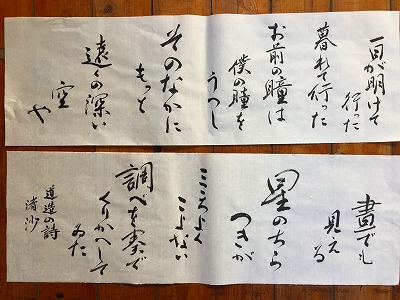 一日が明けて
行った
暮れて行った
お前の瞳は
僕の瞳を
うつし
そのなかに
もっと
遠くの深い
空や
晝でも
見える
星のちら
つきが
こころよく
こよない
調べを奏で
くりかへして
ゐた
道造の詩
渚沙